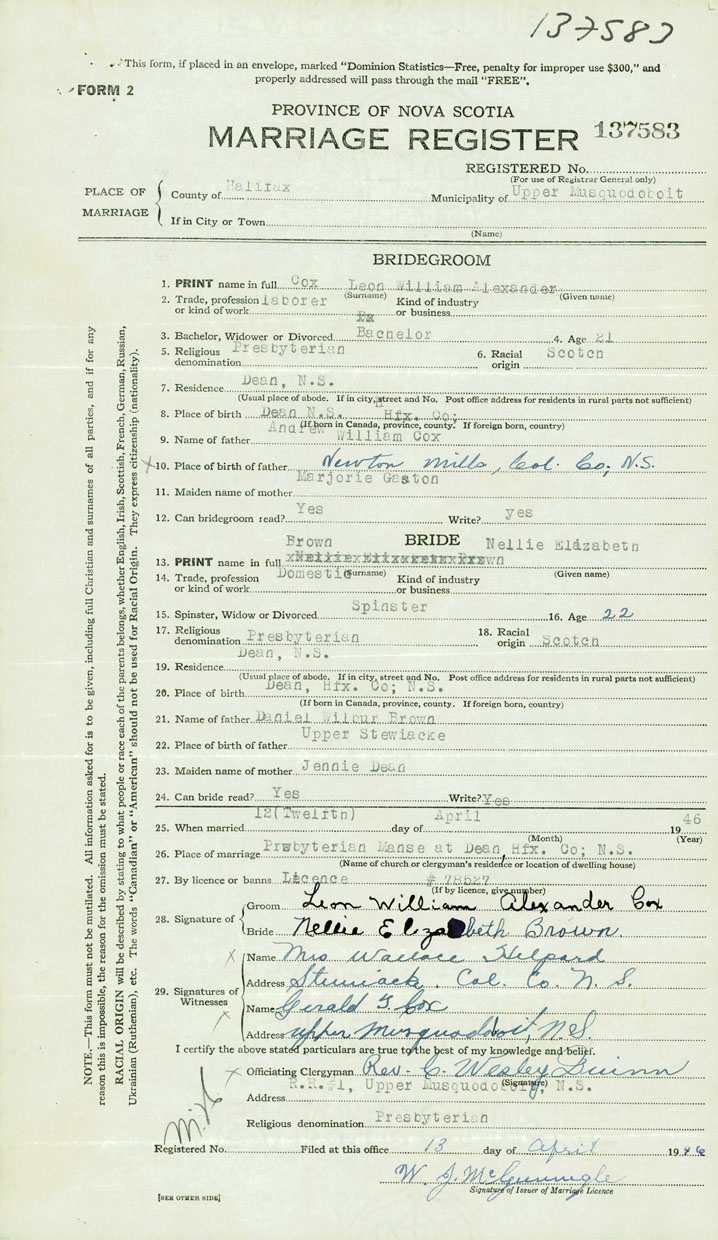 137583
This form, if placed in an envelope, marked "Dominion Statistics—Free, penalty for improper use $300," and
properly addressed will pass through the mail "FREE".
FORM 2
PROVINCE OF NOVA SCOTIA
MARRIAGE REGISTER 137583
REGISTERED No.
(For use of Registrar General only)
PLACE OF MARRIAGE
County of Halifax Municipality of Upper Musquodoboit
If in City or Town
(Name)
BRIDEGROOM
1. PRINT name in full Cox Leon William Alexander
(Surname) (Given name)
2. Trade, profession or kind of work laborer Kind of industry or business
3. Bachelor, Widower or Divorced Bachelor 4. Age 21
5. Religious denomination Presbyterian 6. Racial origin Scotch
7. Residence Dean, N.S.
(Usual place of abode. If in city, street and No. Post office address for residents in rural parts not sufficient)
8. Place of birth Dean N.S. Hfx. Co;
(If born in Canada, province, county. If foreign born, country)
9. Name of father Andrew William Cox
10. Place of birth of father Newton Mills, Col. Co; N.S.
11. Maiden name of mother Marjorie Gaston
12. Can bridegroom read? Yes Write? yes
BRIDE
13. PRINT name in full Brown Nellie Elizabeth
(Surname) (Given name)
14. Trade, profession or kind of work Domestic Kind of industry or business
15. Spinster, Widow or Divorced Spinster 16. Age 22
17. Religious denomination Presbyterian 18. Racial origin Scotch
19. Residence Dean, N.S.
(Usual place of abode. If in city, street and No. Post office address for residents in rural parts not sufficient)
20. Place of birth Dean, Hfx. Co; N.S.
(If born in Canada, province, county. If foreign born, country)
21. Name of father Daniel Wilbur Brown
22. Place of birth of father Upper Stewiacke
23. Maiden name of mother Jennie Dean
24. Can bride read? Yes Write? Yes
25. When married 12(Twelfth) day of April 1946
(Month) (Year)
26. Place of marriage Prebyterian Manse at Dean, Hfx. Co; N.S.
(Name of church or clergyman's residence or location of dwelling house)
27. By licence or banns Licence # 78527
(If by licence, give number)
28. Signature of
Groom Leon William Alexander Cox
Bride Nellie Elizabeth Brown
29. Signatures of Witnesses
Name Mrs Wallace
Address Col. Co. N.S.
Name Gerald G. Cox
Address upper Musquodoboit, N.S.
I certify the above stated particulars are true to the best of my knowledge and belief.
Officiating Clergyman Rev. C. Wesley
(Signature)
Address R.R.#1, Upper Musquodoboit, N.S.
Religious denomination Presbyterian
Registered No. Filed at this office 13 day of April 1946
W. J.
Signature of Issuer of Marriage Licence
[SEE OTHER SIDE]
NOTE.—This form must not be mutilated. All information asked for is to be given, including full Christian and surnames of all parties, and if for any
reason this is impossible, the reason for the omission must be stated.
RACIAL ORIGIN will be described by stating to what people or race each of the parents belongs, whether English, Irish, Scottish, French, German, Russian,
Ukrainian (Ruthenian), etc. The words "Canadian" or "American" should not be used for Racial Origin. They express citizenship (nationality).